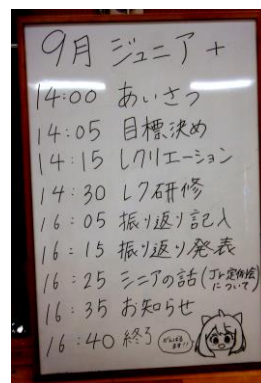 9月 ジュニア +
14:00 あいさつ
14:05 目標決め
14:15 レクリエーション
14:30 レク研修
16:05 振り返り記入
16:15 振り返り発表
16:25 シニアの話(Jr.定例会について)
16:35 お知らせ
16:40 終了
がんばるます!!